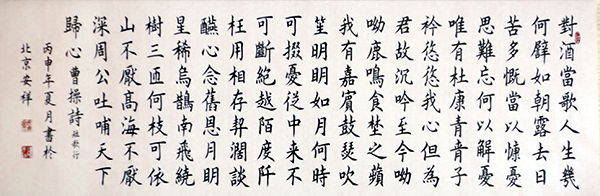 對酒當歌人生幾
何譬如朝露去日
苦多慨當以慷憂
思難忘何以解憂
唯有杜康青青子
衿悠悠我心但為
君故沉吟至今呦
呦鹿鳴食埜之蘋
我有嘉賓鼓瑟吹
笙明明如月何時
可掇憂從中來不
可斷絕越陌度阡
枉用相存契闊談
醼心念舊恩月明
星稀烏鵲南飛繞
樹三匝何枝可依
山不厭高海不厭
深周公吐哺天下
歸心曹操詩短歌行
丙申年夏月書於
北京安祥